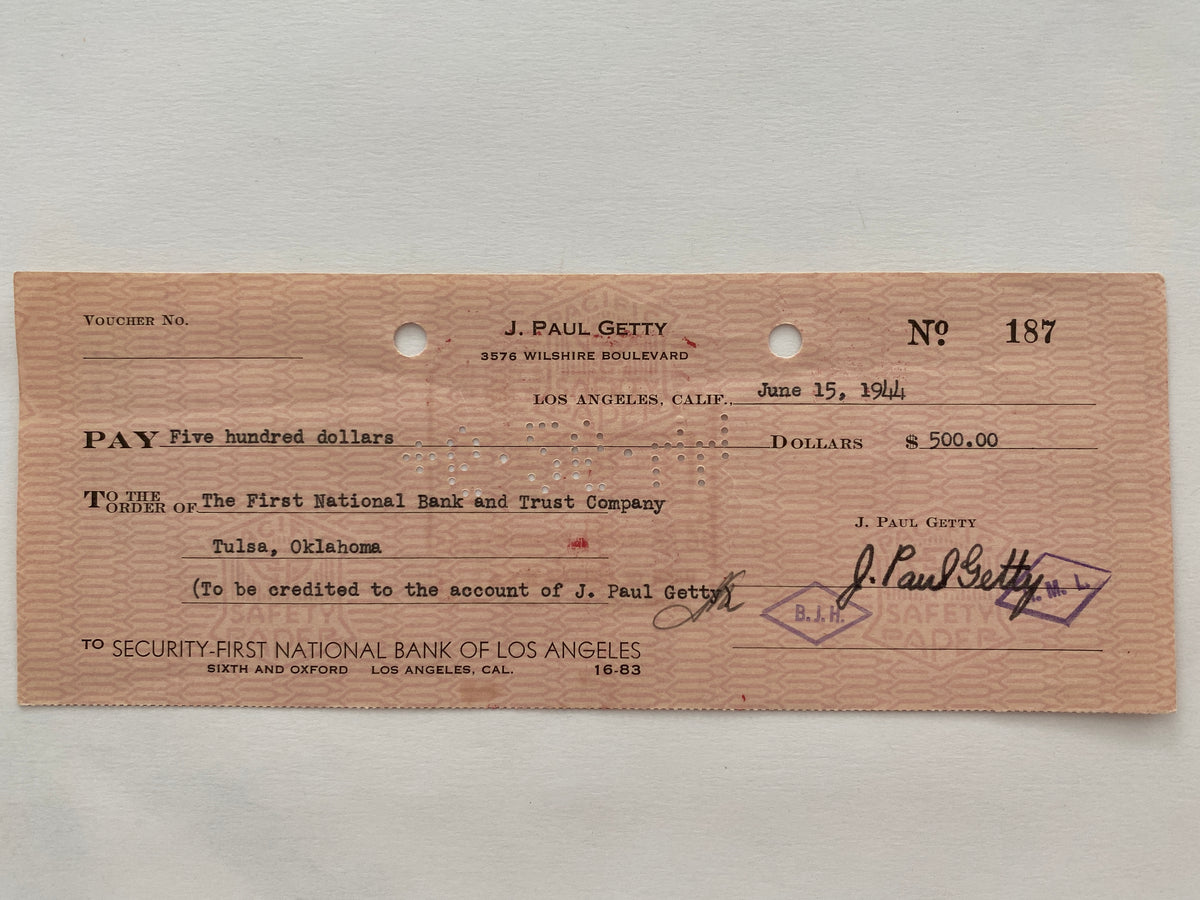 VOUCHER NO.
J. PAUL GETTY
3576 WILSHIRE BOULEVARD
Nº 187
LOS ANGELES, CALIF., June 15, 1944
PAY Five hundred dollars DOLLARS $ 500.00
TO THE ORDER OF The First National Bank and Trust Company
Tulsa, Oklahoma
(To be credited to the account of J. Paul Getty
J. PAUL GETTY
J. Paul Getty
B.J.H.
M. L.
TO SECURITY-FIRST NATIONAL BANK OF LOS ANGELES
SIXTH AND OXFORD LOS ANGELES, CAL. 16-83
SAFETY
SAFETY